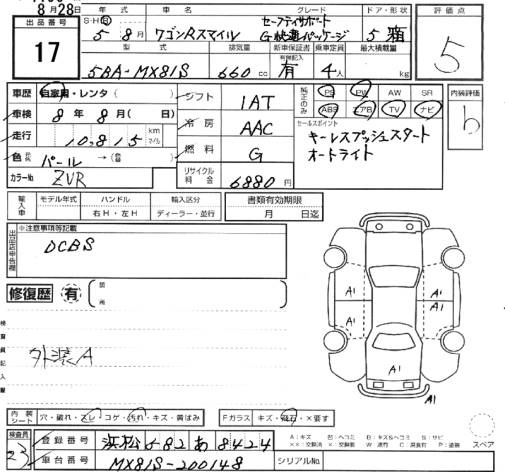 8月28日
出品番号
17
S・H・R
年 式
車 名
グレード
ドア・形状
評価点
5年 8月
ワゴンRスマイル
セーフティサポート
G快適パッケージ
5 箱
5
型 式
排気量
新車保証書
有無記入
乗車定員
最大積載量
5BA-MX81S
660cc
有
4人
kg
車歴
自家用・レンタ( )
車検
8年 8月( 日)
走行
10,815
km
マイル
色
パール → (替 )
カラーNo
ZVR
シフト
1AT
冷房
AAC
燃料
G
リサイクル
料金
6880円
純正のみ
PS PW AW SR
ABS エアB TV ナビ
セールスポイント
キーレスプッシュスタート
オートライト
内装評価
b
輸入車
モデル年式
ハンドル
右H・左H
輸入区分
ディーラー・並行
書類有効期限
月 日迄
出品店申告欄
※注意事項等記載
DCBS
修復歴 有
箇所
検査員記入欄
外装A
A1
A1
A1
A1
A1
A1
内装
シート
穴・破れ・スレ・コゲ・汚れ・キズ・黄ばみ
Fガラス
キズ・飛石・×要す
検査員
23
登録番号
浜松 582 あ 8424
車台番号
MX81S-200148
シリアルNo.
A:キズ
スペア